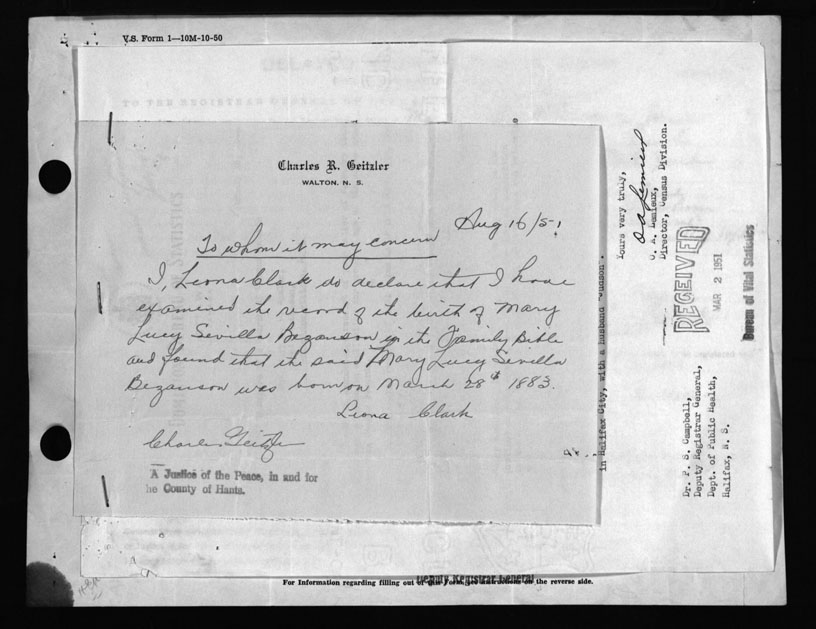 V.S. Form 1—10M-10-50
Charles R. Geitzler
WALTON, N. S.
Aug 16/51
To whom it may concern
I, Leona Clark do declare that I have
examined the record of the birth of Mary
Lucy Sevilla Bezanson in the Family Bible
and found that the said Mary Lucy Sevilla
Bezanson was born on March 28th 1883.
Leona Clark
Charles Geitzler
A Justice of the Peace, in and for
he County of Hants.
in Halifax City, with a husband "Judson".
Yours very truly,
Lemieux,
Director, Census Division.
RECEIVED
MAR 2 1951
Bureau of Vital Statistics
Dr. P. S. Campbell,
Deputy Registrar General,
Dept. of Public Health,
Halifax, N. S.
Deputy Registrar General
For Information regarding filling out of this Form, see instructions on the reverse side.